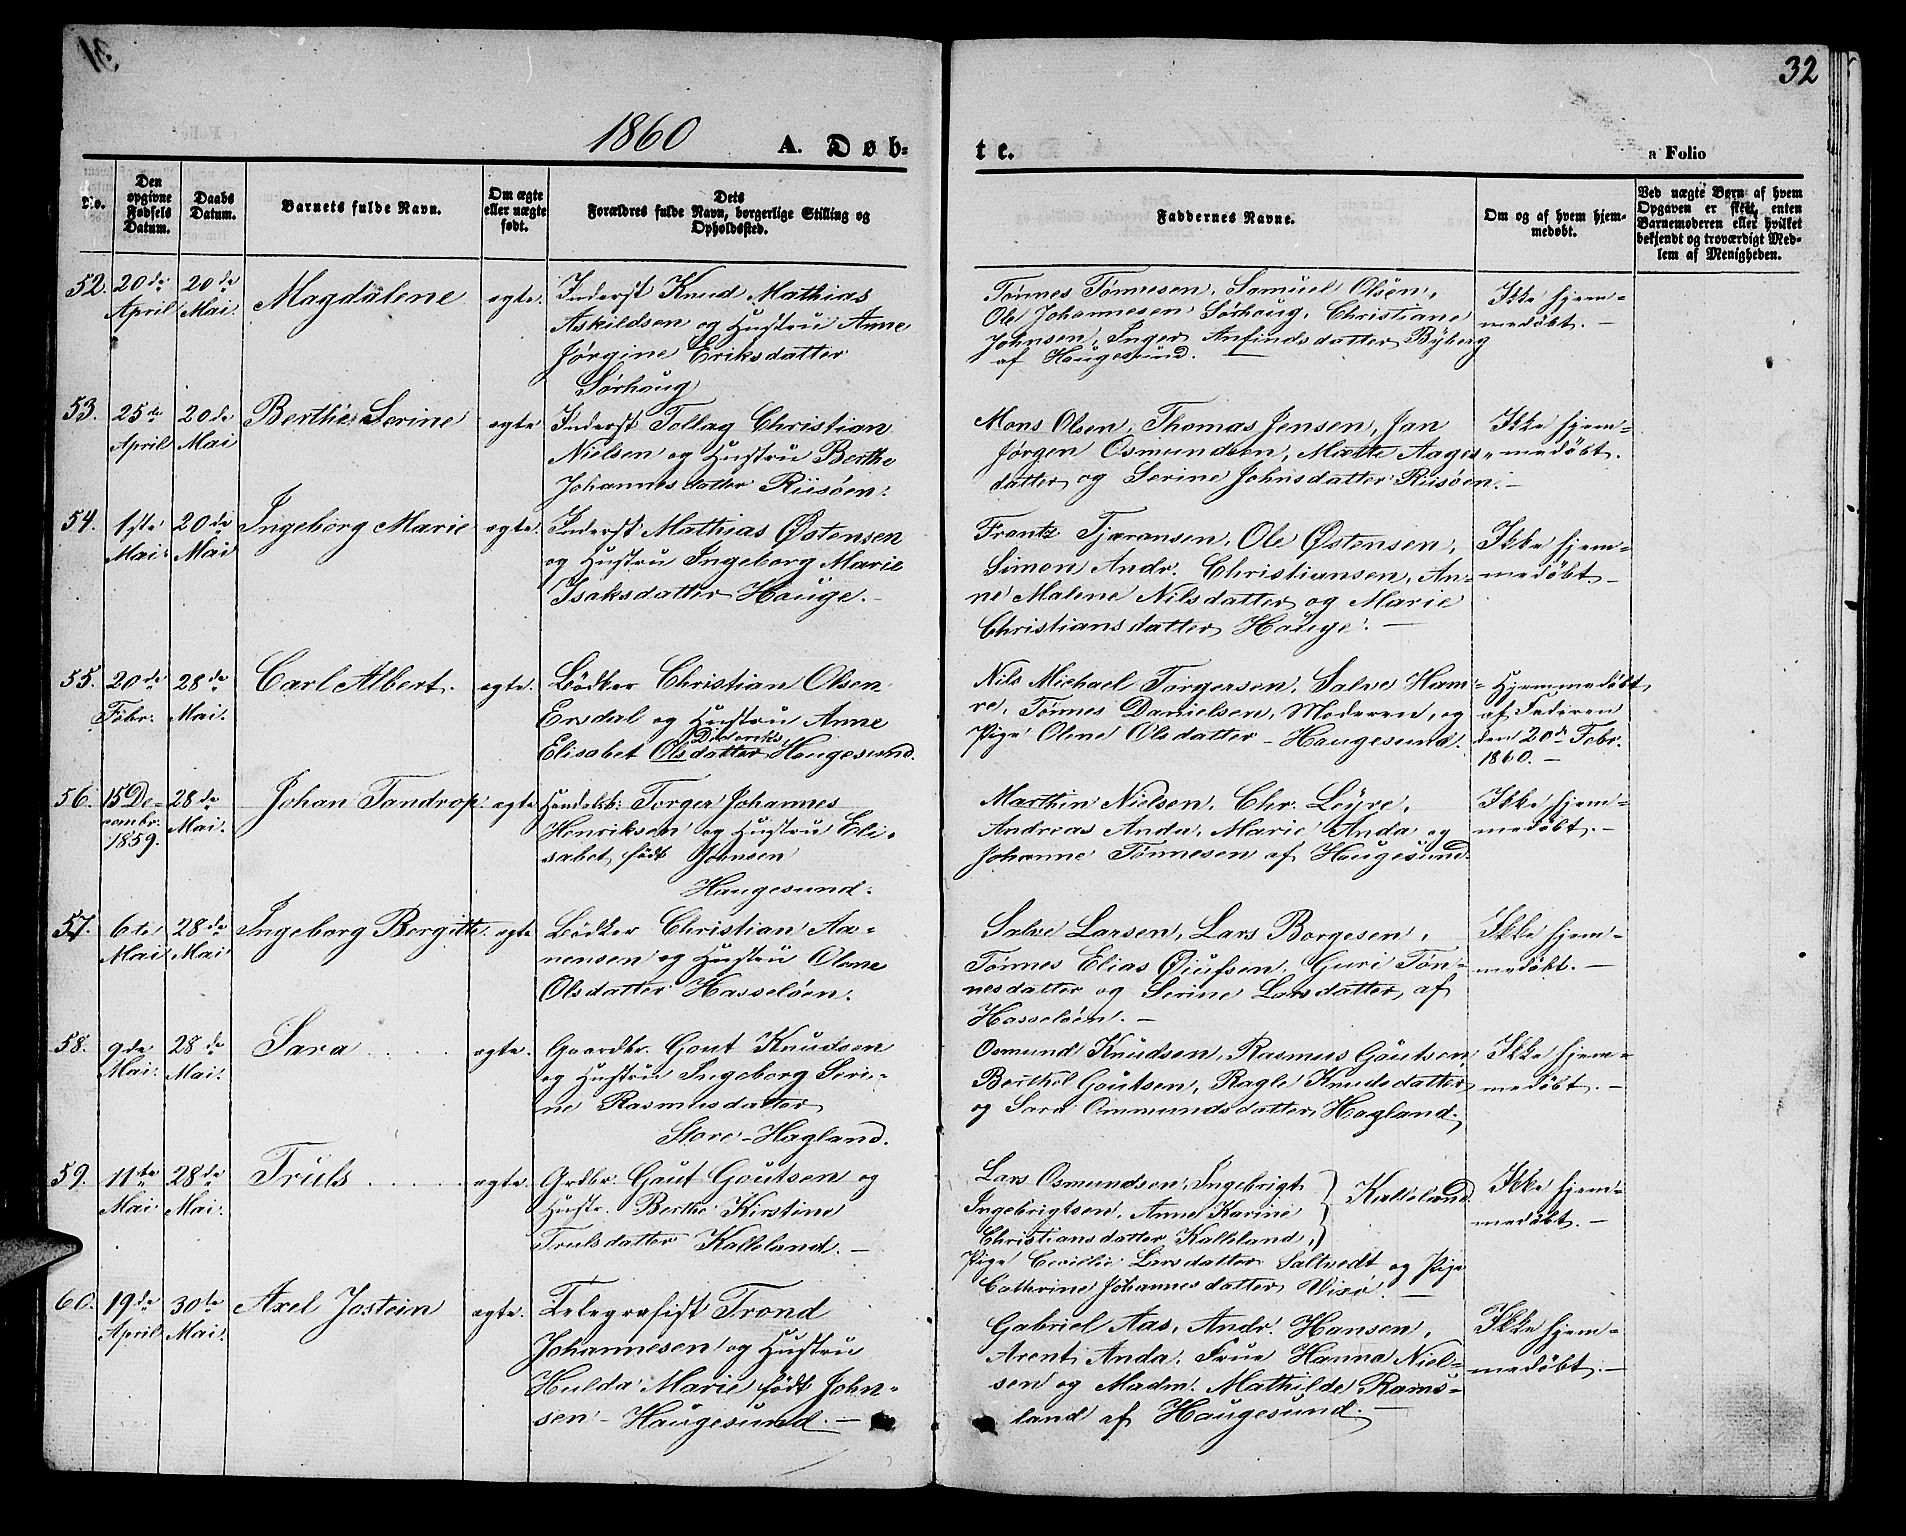 32
1860 A. Døb-
te.
a Folio
No.
Den
opgivne
Fødsels
Datum.
Daabs
Datum.
Barnets fulde Navn.
Om ægte
eller uægte
født.
Dets
Forældres fulde Navn, borgerlige Stilling og
Opholdssted.
Faddernes Navne.
Om og af hvem hjem-
medøbt.
Ved uægte Børn af hvem
Opgaven er skeet, enten
Barnemoderen eller hvilket
bekjendt og troværdigt Med-
lem af Menigheden.
52. 20de April 20de Mai Magdalene ægte.
Inderst Knud Mathias
Askildsen og Hustru Anne
Jørgine Eriksdatter
Sørhoug
Tønnes Tønnesen, Samuel Olsen,
Ole Johannesen Sørhoug, Christiane
Johnsen, Inger Anfindsdatter Byberg
af Haugesund.
Ikke hjem-
medøbt.
53. 25de April 20de Mai Berthe Serine ægte
Inderst Tollag Christian
Nielsen og Hustru Berthe
Johannesdatter Riisøen.
Mons Olsen, Thomas Jensen, Jan
Jørgen Osmundsen, Mætte Aages-
datter og Serine Johnsdatter Riisøen.
Ikke hjem-
medøbt.
54. 1ste Mai 20de Mai Ingeborg Marie ægte.
Inderst Mathias Østensen
og Hustru Ingeborg Marie
Isaksdatter Hauge.
Frantz Tjæransen, Ole Østensen,
Simon Andr. Christiansen, An-
ne Malene Nilsdatter og Marie
Christiansdatter Hauge.
Ikke hjem-
medøbt.
55. 20de Febr. 28de Mai. Carl Albert. ægte.
Bødker Christian Olsen
Ersdal og Hustru Anne
Elisabet Olsdatter Haugesund.
Nils Michael Torgersen, Salve Ham-
re, Tønnes Danielsen, Moderen, og
Pige Olene Olsdatter - Haugesund.
Hjemmedøbt
af Faderen
den 20de Febr.
1860.
56. 15 De-
cembr.
1859. 28de Mai. Johan Tandrop ægte
Handelsb: Torger Johannes
Henriksen og Hustru Eli-
sabet født Joensen
Haugesund.
Marthin Nielsen, Chr. Løyre,
Andreas Anda, Marie Anda og
Johanne Tønnesen af Haugesund.
Ikke hjem-
medøbt.
57. 6te Mai 28de Mai Ingeborg Bergitte. ægte
Bødker Christian Aa-
nensen og Hustru Olene
Olsdatter Hasseløen.
Salve Larsen, Lars Borgesen,
Tønnes Elias Guri Tøn-
nesdatter og Serine Larsdatter af
Hasseløen.
Ikke hjem-
medøbt.
58. 9de Mai. 28de Mai. Sara ægte.
Gaardbr. Gout Knudsen
og Hustru Ingeborg Seri-
ne Rasmusdatter
Store-Hagland.
Osmund Knudsen, Rasmus Goutsen,
Berthel Goutsen, Ragle Knudsdatter
og Sara Ommundsdatter Hagland.
Ikke hjem-
medøbt.
59. 11te Mai 28de Mai. Truls ægte.
Grdbr. Gout Goutsen og
Hustr. Berthe Kirstine
Trulsdatter Kalleland.
Lars Osmundsen, Ingebrigt
Ingebrigtsen, Anne Karine
Christiansdatter Kalleland,
Pige Cecilie Larsdatter Saltvedt og Pige
Cathrine Johannesdatter
Kalleland
Ikke hjem-
medøbt.
60. 19de April 30te Mai. Axel Jostein ægte.
Telegrafist Trond
Johannesen og Hustru
Hulda Marie født John-
sen - Haugesund.
Gabriel Aas, Andr. Hansen,
Arent Anda, Frue Hanna Niel-
sen og Madm. Mathilde Rams-
land af Haugesund.
Ikke hjem-
medøbt.